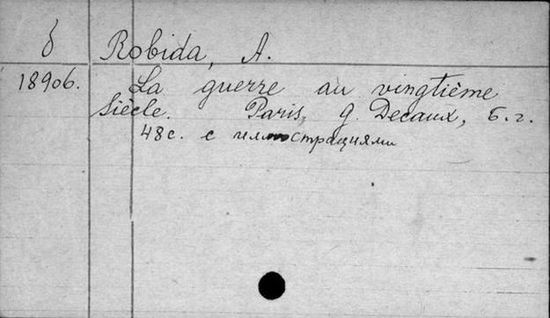 δ Robida, A.
18906. La guerre au vingtième
Siècle. Paris, G. Decaux, б. г.
48 с. с иллюстрациями